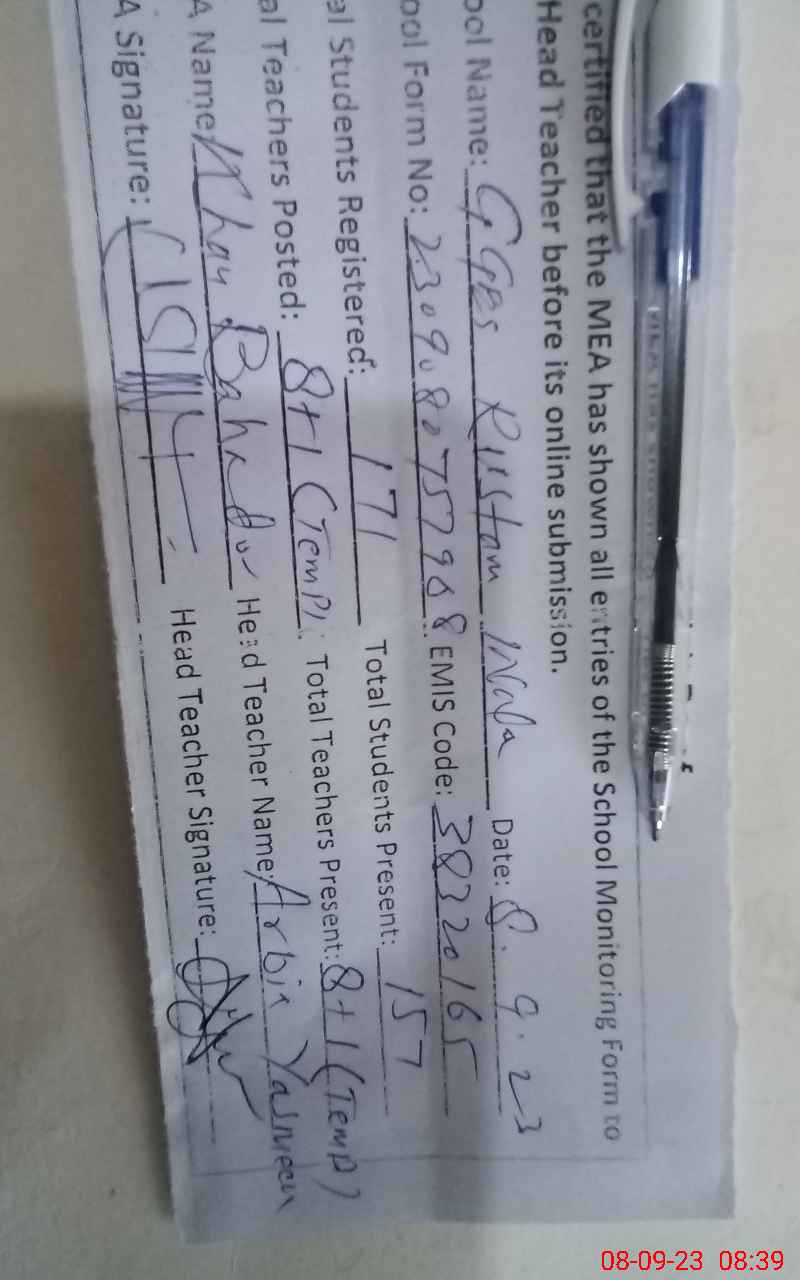 certified that the MEA has shown all entries of the School Monitoring Form to
Head Teacher before its online submission.
ool Name: GGPS Rustam Wala Date: 8.9.23
ool Form No: EMIS Code: 38320165
al Students Registered: 171 Total Students Present: 157
al Teachers Posted: 8+1 (Temp). Total Teachers Present: 8+1 (Temp)
A Name: Khan Bahadur Head Teacher Name: Arbia Yasmeen
A Signature: Head Teacher Signature:
08-09-23 08:39